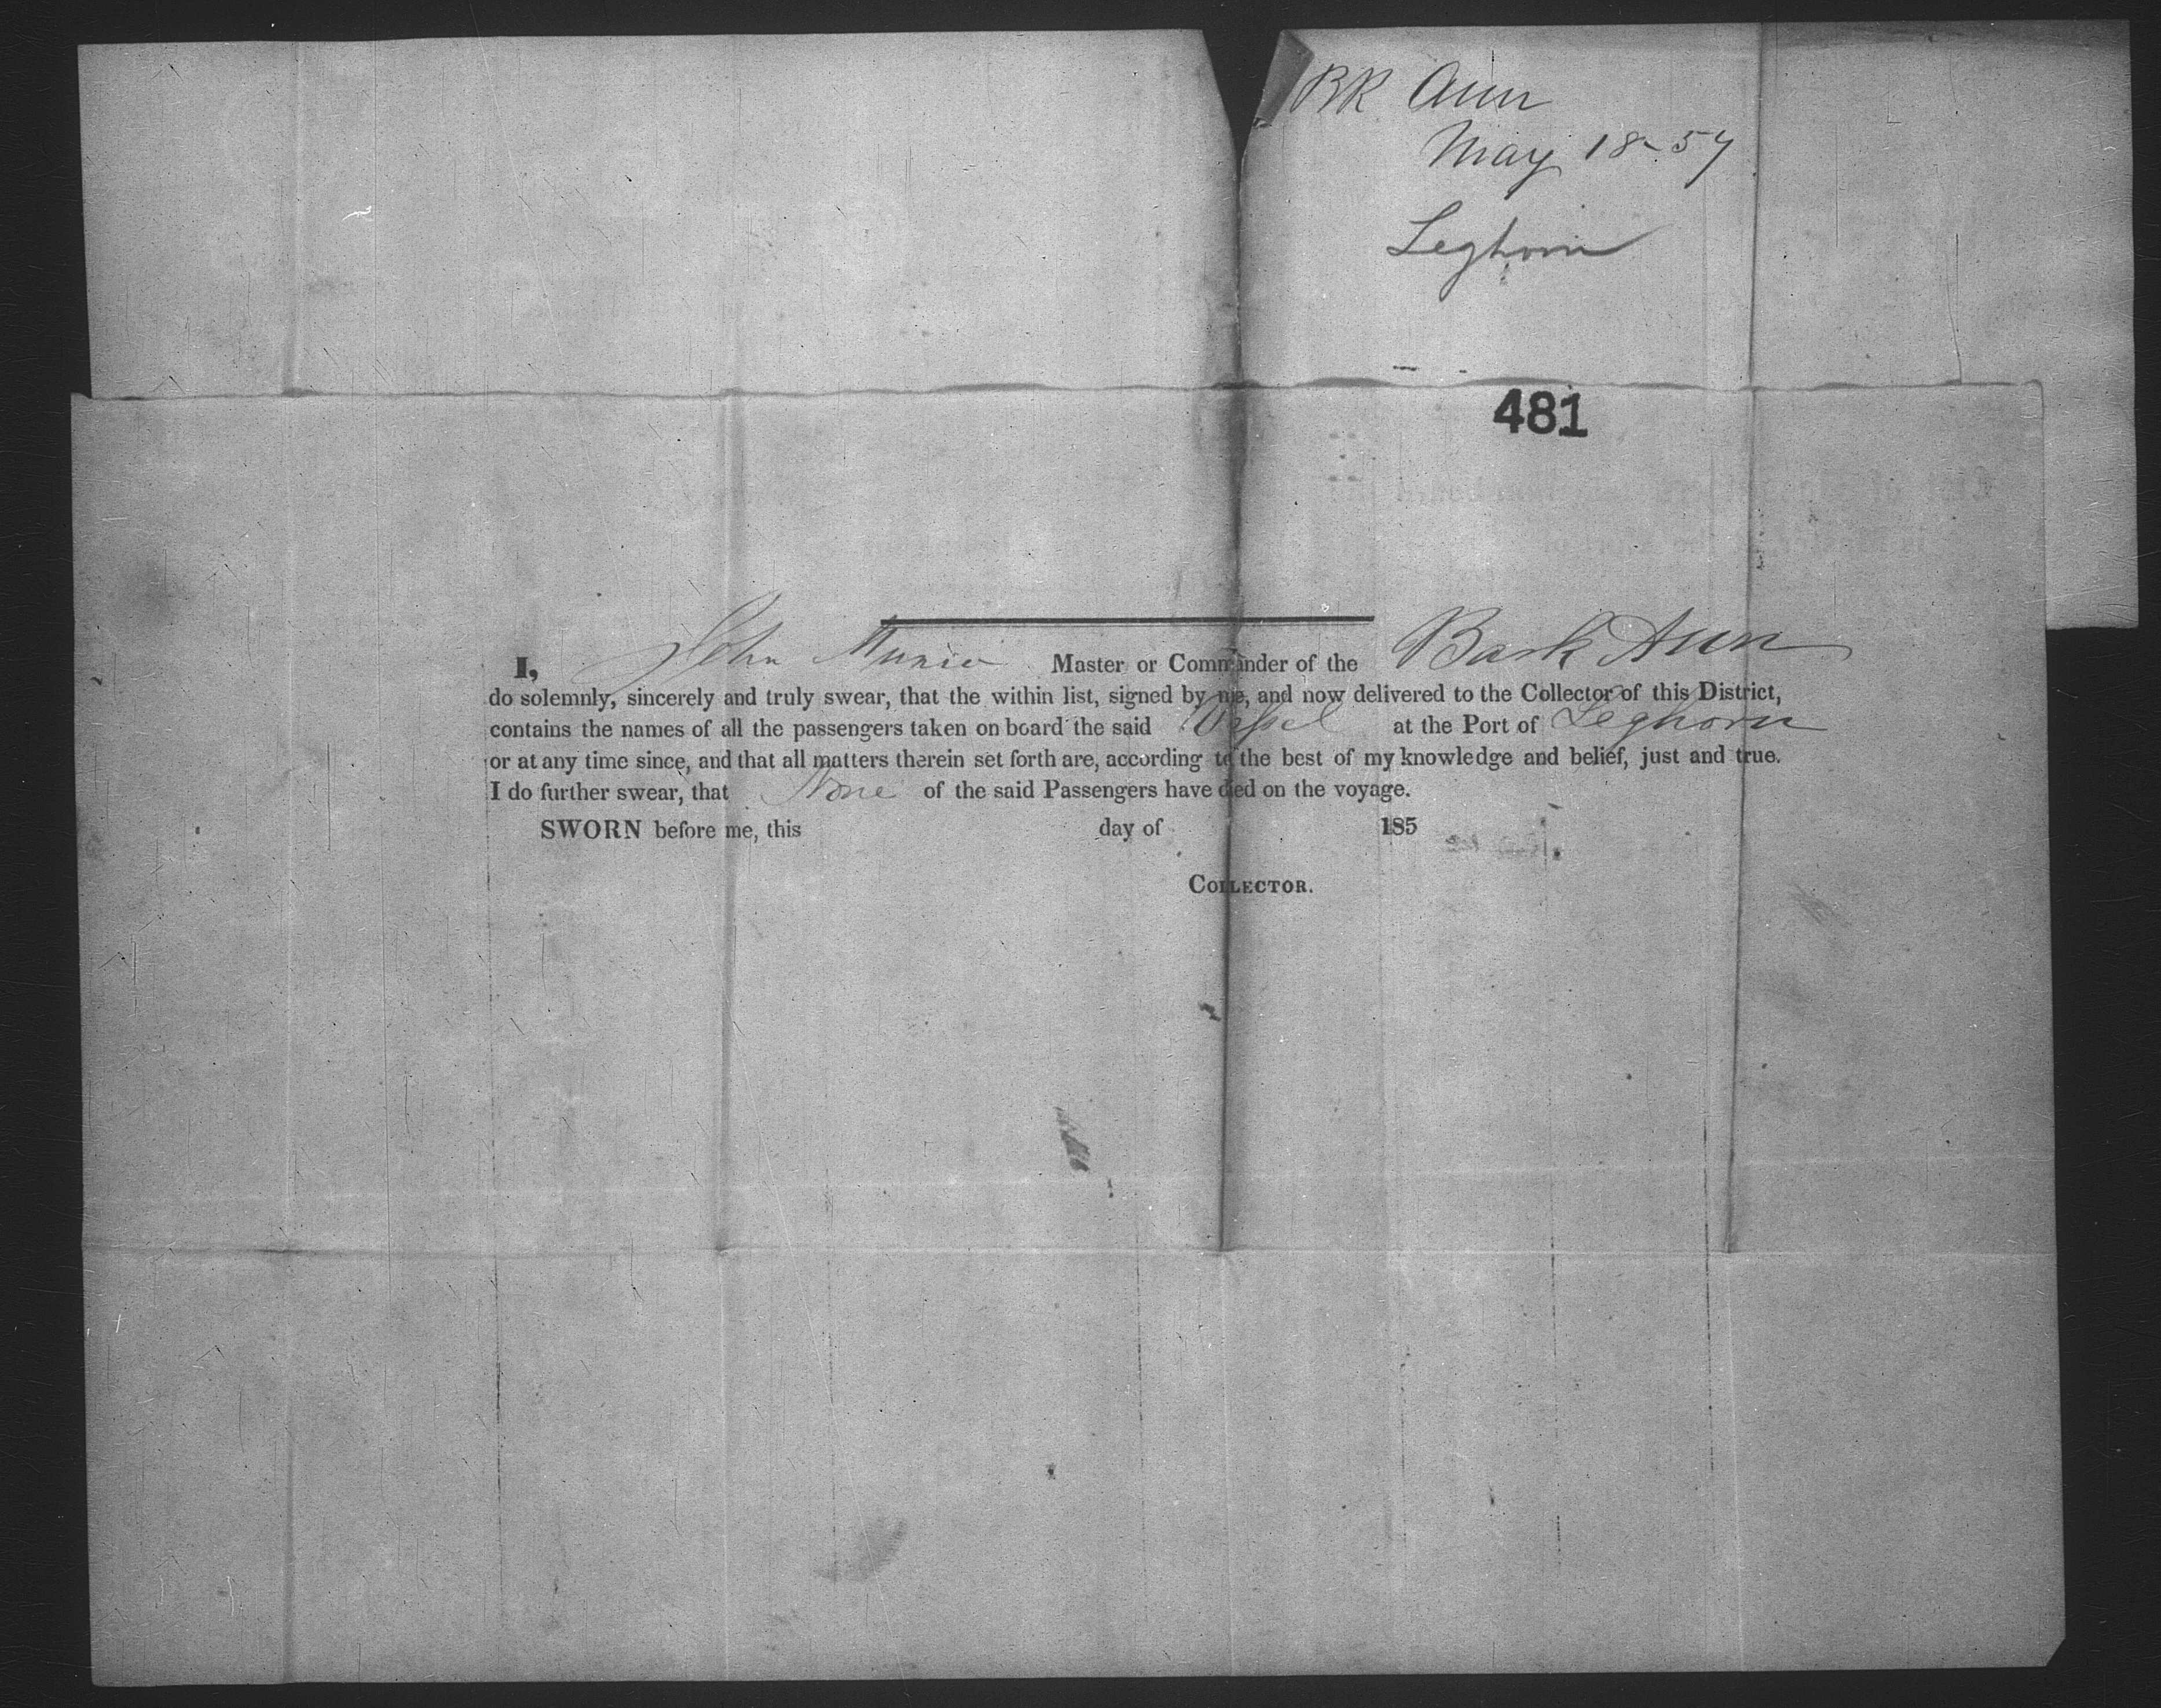 BK Ann
May 18-57
Leghorn
481
I, John Master or Commander of the Bark Ann
do solemnly, sincerely and truly swear, that the within list, signed by me, and now delivered to the Collector of this District,
contains the names of all the passengers taken on board the said Vessel at the Port of Leghorn
or at any time since, and that all matters therein set forth are, according to the best of my knowledge and belief, just and true.
I do further swear, that None of the said Passengers have died on the voyage.
SWORN before me, this day of 185
COLLECTOR.